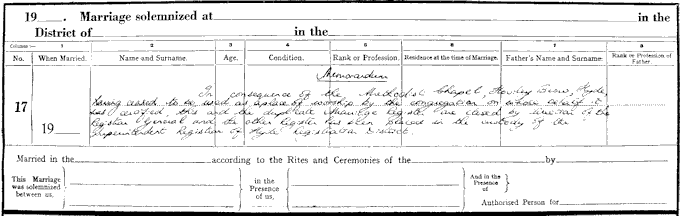 19__. Marriage solemnized at in the
District of in the
Columns:— 1 2 3 4 5 6 7 8
No. When Married. Name and Surname. Age. Condition. Rank or Profession. Residence at the time of Marriage. Father's Name and Surname. Rank or Profession of Father.
Memorandum
In consequence of the Methodist Chapel, Hyde,
having ceased to be used as a place of worship by the congregation on whose behalf it
was certified, this and the duplicate Marriage Register are closed by direction of the
Registrar General and the other Register has been placed in the custody of the
Superintendent Registrar of Hyde Registration District.
17
19
Married in the according to the Rites and Ceremonies of the by
This Marriage was solemnized between us, in the Presence of us, And in the Presence of
Authorised Person for